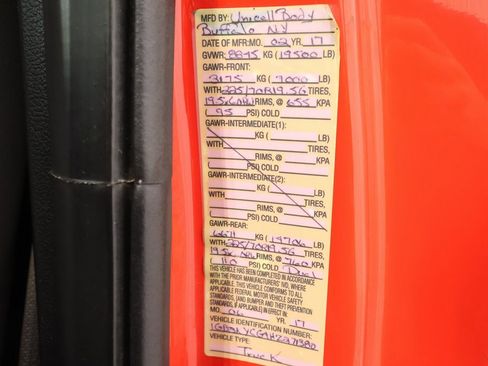 MFD BY: Unicell Body
Buffalo NY
DATE OF MFR:MO. 02 YR. 17
GVWR: 8845 KG (19500 LB)
GAWR-FRONT:
3175 KG (7000 LB)
WITH 225/70R19.5G TIRES,
RIMS, @ 655 KPA
(95 PSI) COLD
GAWR-INTERMEDIATE(1):
KG ( LB)
WITH TIRES,
RIMS, @ KPA
( PSI) COLD
GAWR-INTERMEDIATE(2):
KG ( LB)
WITH TIRES,
RIMS, @ KPA
( PSI) COLD
GAWR-REAR:
KG ( LB)
WITH 225/70R19.5G TIRES,
RIMS, @ 760 KPA
(110 PSI) COLD Dual
THIS VEHICLE HAS BEEN COMPLETED IN ACCORDANCE
WITH THE PRIOR MANUFACTURERS' IVD, WHERE
APPLICABLE. THIS VEHICLE CONFORMS TO ALL
APPLICABLE FEDERAL MOTOR VEHICLE SAFETY
STANDARDS, (AND BUMPER AND THEFT PREVENTION
STANDARDS, IF APPLICABLE) IN EFFECT IN:
MO. 06 YR. 17
VEHICLE IDENTIFICATION NUMBER:
VEHICLE TYPE:
Truck